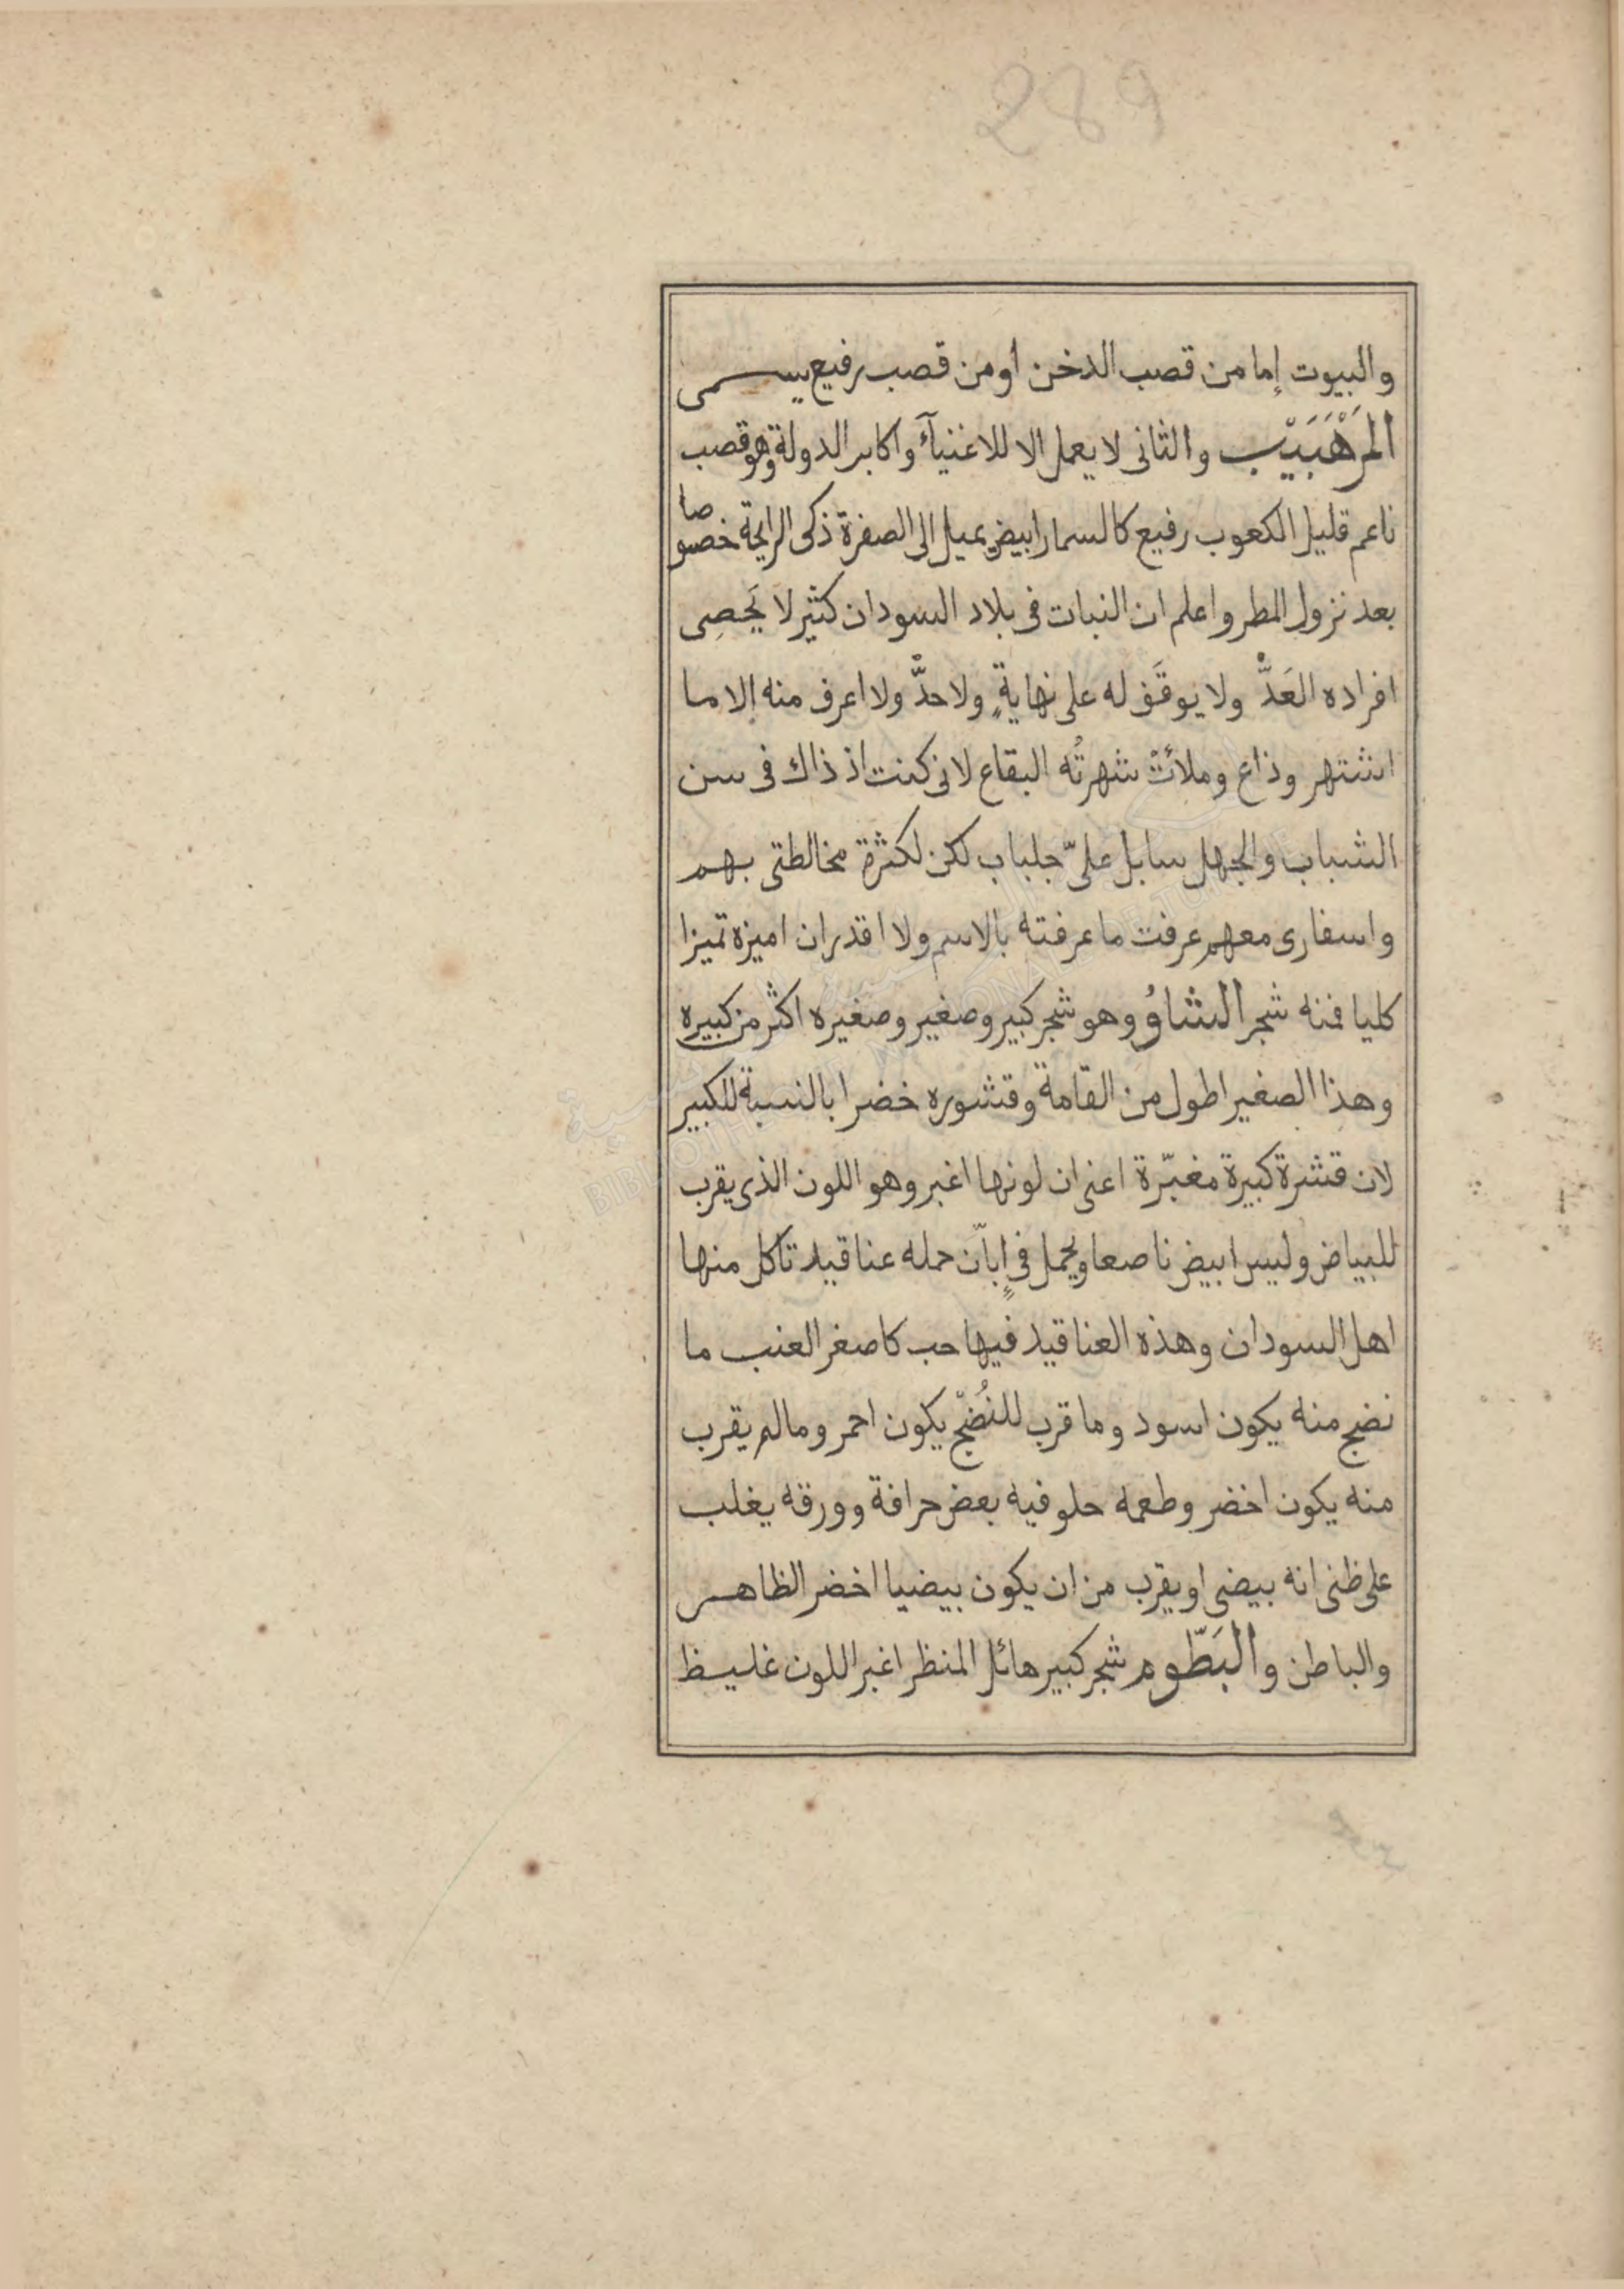 289
والبيوت إما من قصب الدخن أو من قصب رفيع يسمى
المَرْهَبَيْب والثانى لا يعمل الا للاغنيآء واكابر الدولة وهو قصب
ناعم قليل الكعوب رفيع كالسمار ابيض يميل الى الصفرة ذكى الرايحة خصوصا
بعد نزول المطر واعلم ان النبات فى بلاد السودان كثير لا يَحصِى
افراده العَدّْ ولا يوقَف له على نهايةٍ ولا حدّْ ولا اعرف منه إلا ما
اشتهر وذاع وملأتْ شهرتُه البقاع لانى كنت اذ ذاك فى سن
الشباب والجهل سابل علىّ جلباب لكن لكثرة مخالطتى بهم
واسفارى معهم عرفت ما عرفته بالاسم ولا اقدر ان اميزه تميزا
كليا فمنه شجر الشاوُ وهو شجر كبير وصغير وصغيره اكثر من كبيره
وهذا الصغير اطول من القامة وقشوره خضرا بالنسبة للكبير
لان قشرة كبيرة مغبّرة اعنى ان لونها اغبر وهو اللون الذى يقرب
للبياض وليس ابيض ناصعا ويحمل فى إبّان حمله عناقيد تاكل منها
اهل السودان وهذه العناقيد فيها حب كاصغر العنب ما
نضج منه يكون اسود وما قرب للنُضْج يكون احمر وما لم يقرب
منه يكون اخضر وطعمه حلو فيه بعض حرافة وورقه يغلب
على ظنى انه بيضى او يقرب من ان يكون بيضيا اخضر الظاهر
والباطن والبَطّوم شجر كبير هائل المنظر اغبر اللون غليظ
BIBLIOTHEQUE NATIONALE DE TUNISIE